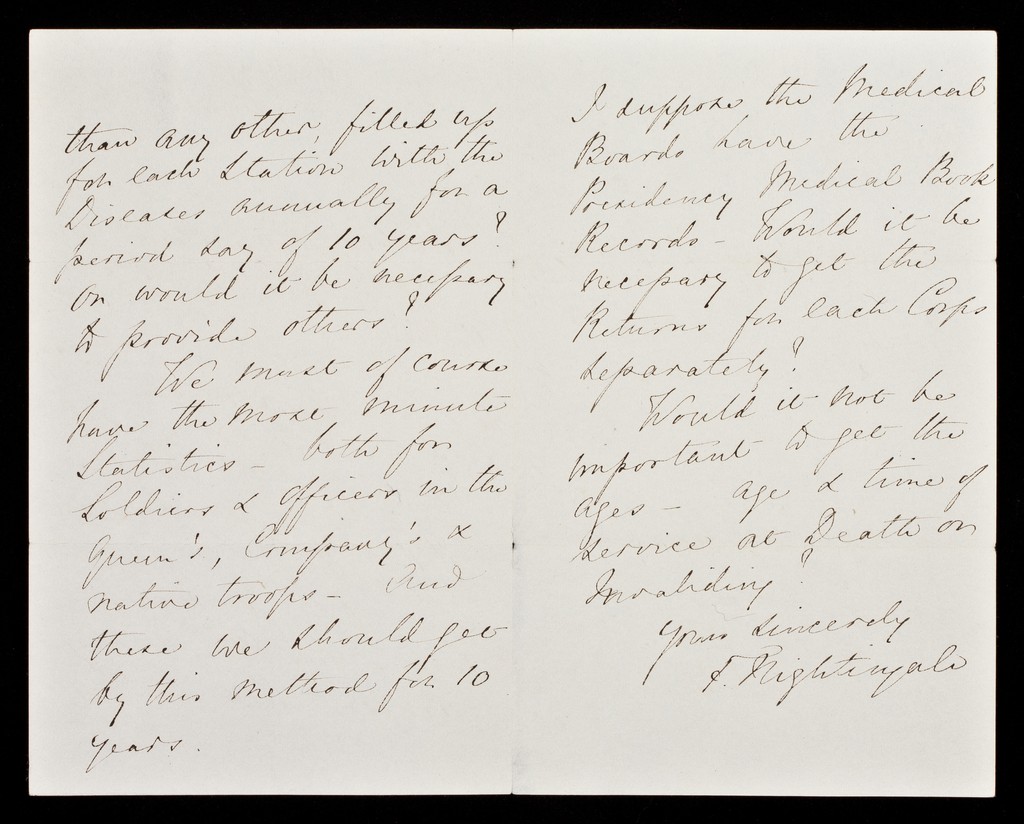 than any other, filled up
for each Station with the
Diseases annually for a
period say of 10 years?
or would it be necessary
to provide others?
We must of course
have the most minute
Statistics - both for
Soldiers & Officers in the
Queen's, Company's &
native troops - And
these we should get
by this method for 10
years.
I suppose the Medical
Boards have the
Presidency Medical Book
Records - Would it be
necessary to get the
Returns for each Corps
separately?
Would it not be
important to get the
ages - age & time of
service at Death or
Invaliding?
Yours sincerely
F. Nightingale